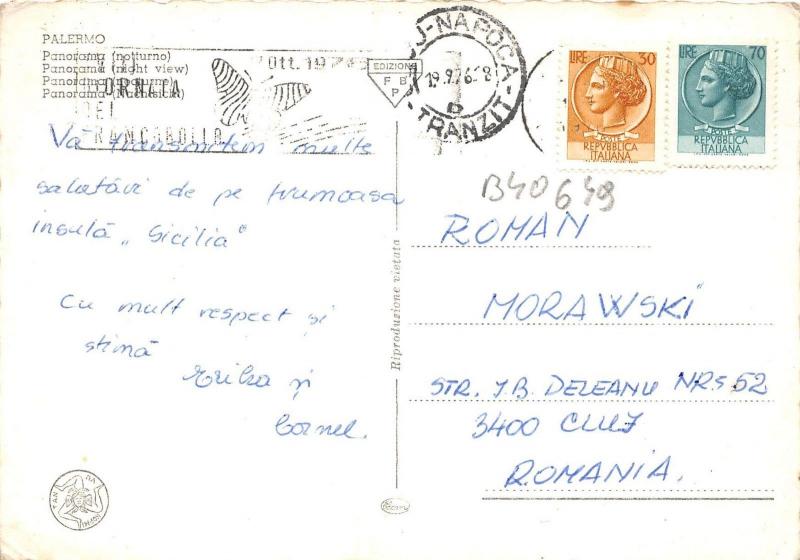 PALERMO
Panorama (notturno)
Panorama (night view)
Panorama (nocturne)
Panorama (Nachtsicht)
Ott. 19
GIORNATA
DEL
FRANCOBOLLO
EDIZIONE
F B
P
CLUJ-NAPOCA
19.9.76-8
TRANZIT
LIRE 30
POSTE
REPVBBLICA
ITALIANA
LIRE 70
POSTE
REPVBBLICA
ITALIANA
B40649
Vă transmitem multe
salutări de pe frumoasa
insulă „Sicilia"
Cu mult respect și
stimă
Erika și
Cornel.
Riproduzione vietata
ROMAN
MORAWSKI
STR. I.B. DELEANU NR. 52
3400 CLUJ
ROMANIA.